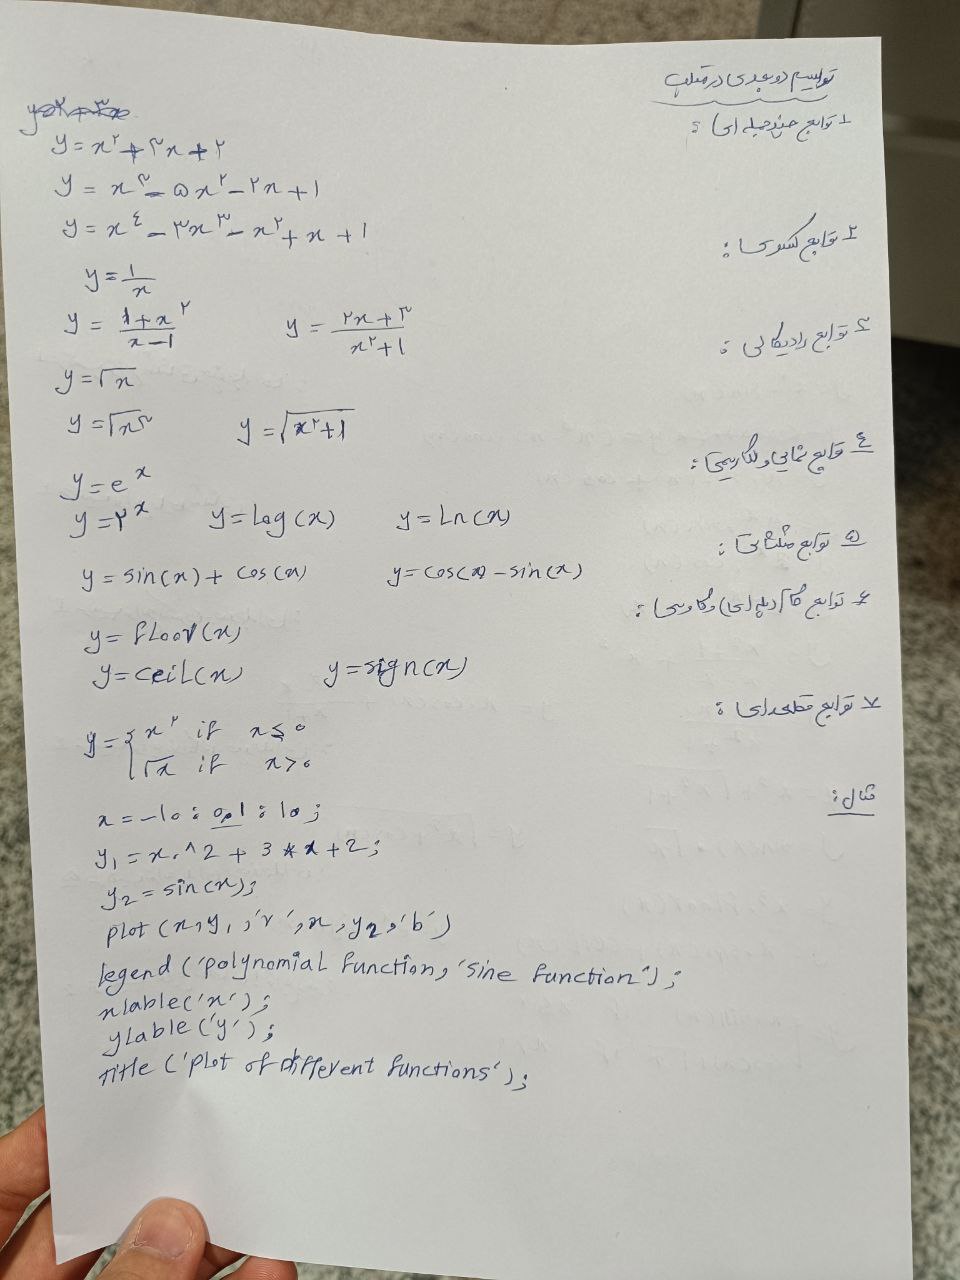 ترسیم دو بعدی در متلب
۱ توابع چندجمله ای :
y = x² + ۳x + ۲
y = x³ - ۵x² - ۲x + ۱
y = x⁴ - ۳x³ - x² + x + ۱
۲ توابع کسری :
y = ۱/x
y = (۱+x²)/(x-۱) y = (۲x+۳)/(x²+۱)
۳ توابع رادیکالی :
y = √x
y = √x³ y = √(x²+۱)
٤ توابع نمایی و لگاریتمی :
y = e^x
y = ۲^x y = Log(x) y = Ln(x)
۵ توابع مثلثاتی :
y = sin(x) + cos(x) y = cos(x) - sin(x)
۶ توابع گام (پله ای) و گاوسی :
y = floor(x)
y = ceil(x) y = sign(x)
۷ توابع قطعه ای :
y = { x² if x ≤ ۰
√x if x > ۰
مثال :
x = -۱۰ : ۰,۱ : ۱۰ ;
y₁ = x.^2 + 3*x + 2 ;
y₂ = sin(x) ;
plot (x, y₁, 'r', x, y₂, 'b')
legend ('polynomial function, 'sine function') ;
xlable('x') ;
ylable ('y') ;
Title ('Plot of different functions') ;